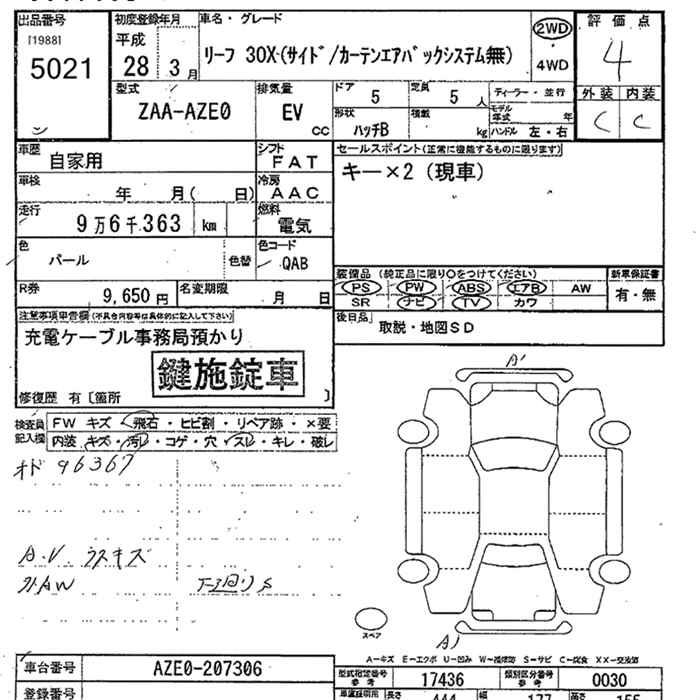 出品番号 初度登録年月 車名・グレード 評価点
[1988] 平成 2WD
5021 28 3月 リーフ 30X(サイド/カーテンエアバックシステム無) 4WD 4
型式 排気量 ドア 5 定員 5 人 ディーラー・並行 外装 内装
ZAA-AZE0 EV モデル年式 年 C C
cc 形状 ハッチB 積載 kg ハンドル 左・右
車歴 自家用 シフト FAT セールスポイント(正常に機能するものに限ります)
車検 年 月( 日) 冷房 AAC キー×2(現車)
走行 9万6千363 km 燃料 電気
色 パール 色替 色コード QAB
装備品 (純正品に限り○をつけてください) 新車保証書
R券 9,650円 名変期限 月 日 PS PW ABS エアB AW 有・無
SR ナビ TV カワ
注意事項申告欄(不具合内容等は具体的に記入して下さい) 後日品 取説・地図SD
充電ケーブル事務局預かり
鍵施錠車
修復歴 有 〔箇所 〕
A'
検査員記入欄 FW キズ・飛石・ヒビ割・リペア跡・×要
内装・キズ・汚レ・コゲ・穴・スレ・キレ・破レ
オド 96367
A・V ウスキズ
外AW
スペア
A)
A-キズ E-エクボ U-凹み W-補修跡 S-サビ C-腐食 XX-交換済
車台番号 AZE0-207306 型式指定番号 参考 17436 類別区分番号 参考 0030
登録番号 長さ 444 幅 177 高さ 155